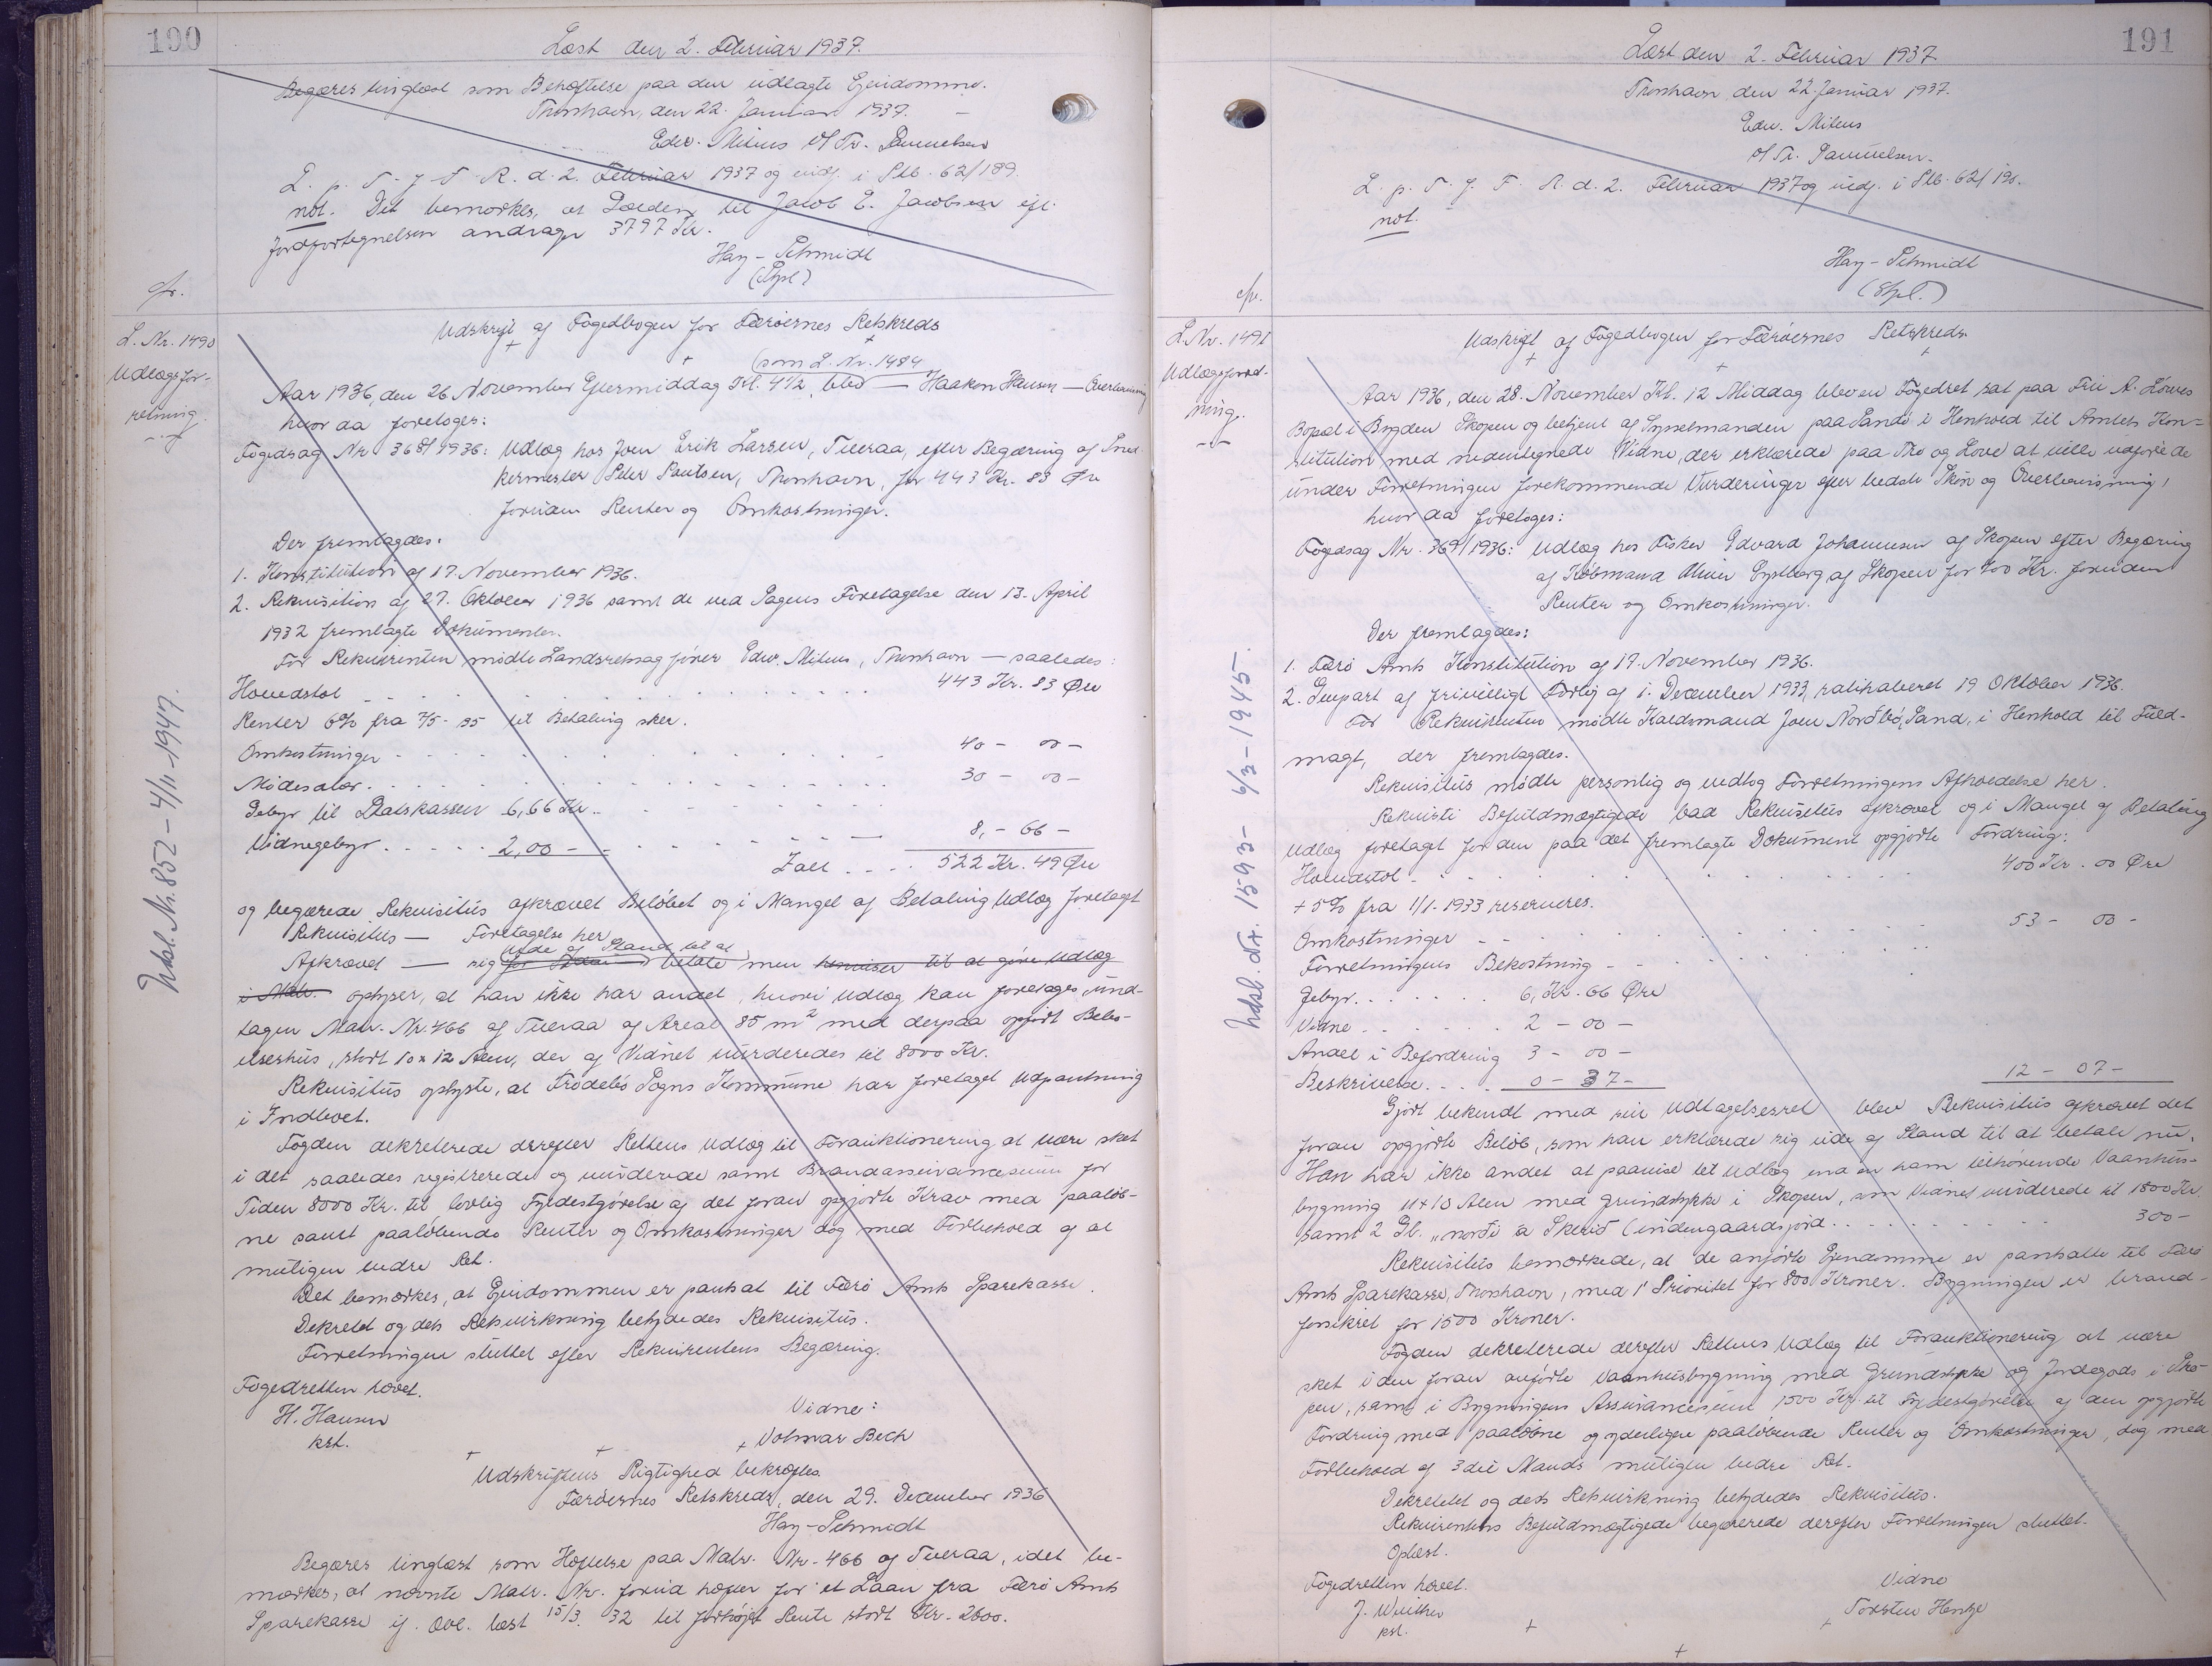 190
Læst den 2. Februar 1937.
Begæres tinglæst som Behæftelse paa den udlagte Ejendomme.
Thorshavn, den 22. Januar 1937.
Edw. Mitens
L. p. T. f. F. R. d. 2. Februar 1937 og indf. i Ptb. 62/189.
not. Det bemærkes, at Gælden til Jacob E. Jacobsen ifl.
Jordfortegnelsen andrager 3797 Kr.
Hay-Schmidt
cfr.
L. Nr. 1490
Udlægsfor-
retning.
Udsl. Nr. 852 - 4/11-1947.
Udskrift af Fogedbogen for Færøernes Retskreds
(som L. Nr. 1484
Aar 1936, den 26 November Eftermiddag Kl. 4 1/2, blev — Haakon Hansen — Overbevisning
hvor da foretoges:
Fogedsag Nr 368/1936: Udlæg hos Joen Erik Larsen, Tveraa, efter Begæring af Sned-
kermester Peter Poulsen, Thorshavn, for 443 Kr. 83 Øre
foruden Renter og Omkostninger.
Der fremlagdes:
1. Konstitution af 17. November 1936.
2. Rekvisition af 27. Oktober 1936 samt de ved Sagens Foretagelse den 13. April
1932 fremlagte Dokumenter.
For Rekvirenten mødte Landsretssagfører Edw. Mitens, Thorshavn — saaledes:
Hovedstol . . . 443 Kr. 83 Øre
Renter 6% fra 7/5-35 til Betaling sker.
Omkostninger . . . 40 - 00 -
Mødesalær . . . 30 - 00 -
Gebyr til Statskassen 6,66 Kr.
Vidnegebyr . . . 2,00 - . . . 8, - 66 -
Ialt . . . 522 Kr. 49 Øre
og begærede Rekvisitus afkrævet Beløbet og i Mangel af Betaling Udlæg foretaget
Rekvisitus — Foretagelse her
Afkrævet — sig ude af Stand til at betale men henviser til at give Udlæg
i Matr. oplyser, at han ikke har andet, hvori Udlæg kan foretages, und-
tagen Matr. Nr. 466 af Tveraa af Areal 85 m² med derpaa opført Bebo-
elseshus, stort 10 x 12 Alen, der af Vidnet vurderedes til 8000 Kr.
Rekvisitus oplyste, at Frodebø Sogns Kommune har foretaget Udpantning
i Indboet.
Fogden dekreterede derefter Rettens Udlæg til Forauktionering at være sket
i det saaledes registrerede og vurderede samt Brandassurancesum for
Tiden 8000 Kr. til lovlig Fyldestgørelse af det foran opgjorte Krav med paaløb-
ne samt paaløbende Renter og Omkostninger dog med Forbehold af al
muligen bedre Ret.
Det bemærkes, at Ejendommen er pantsat til Færø Amts Sparekasse.
Dekretet og dets Retsvirkning betydedes Rekvisitus.
Forretningen sluttet efter Rekvirentens Begæring.
Fogedretten hævet.
H. Hansen
kst.
Vidne:
Volmar Bech
Udskriftens Rigtighed bekræftes.
Færøernes Retskreds, den 29. December 1936
Hay-Schmidt
Begæres tinglæst som Hæftelse paa Matr. Nr. 466 af Tveraa, idet be-
mærkes, at nævnte Matr. Nr. forud hæfter for et Laan fra Færø Amts
Sparekasse if. Obl. læst 15/3. 32 til forhøjet Rente stort Kr. 2600.
191
Læst den 2. Februar 1937
Thorshavn, den 22. Januar 1937.
Edw. Mitens
L. p. T. f. F. R. d. 2. Februar 1937 og indf. i Ptb. 62/190.
not.
Hay-Schmidt
cfr.
L. Nr. 1491
Udlægsforret-
ning.
Udsl. Nr. 1593 - 6/3-1945.
Udskrift af Fogedbogen for Færøernes Retskreds
Aar 1936, den 28. November Kl. 12 Middag blev en Fogedret sat paa
Bopæl i Bygden Skopen og betjent af Sysselmanden paa Sandø i Henhold til Amtets Kon-
stitution med nedentegnede Vidne, der erklærede paa Tro og Love at ville udføre de
under Forretningen forekommende Vurderinger efter bedste Skøn og Overbevisning,
hvor da foretoges:
Fogedsag Nr. 369/1936: Udlæg hos Fisker Edvard Johannesen af Skopen efter Begæring
af Købmand af Skopen for 400 Kr. foruden
Renter og Omkostninger.
Der fremlagdes:
1. Færø Amts Konstitution af 17. November 1936.
2. Genpart af frivilligt Forlig af 1. December 1933, ratihaberet 19 Oktober 1936.
For Rekvirenten mødte Handsmand Joen Norðbø, Sand, i Henhold til Fuld-
magt, der fremlagdes.
Rekvisitus mødte personlig og vedtog Forretningens Afholdelse her.
Rekvisiti Befuldmægtigede bad Rekvisitus afkrævet og i Mangel af Betaling
Udlæg foretaget for den paa det fremlagte Dokument opgjorte Fordring:
Hovedstol . . . 400 Kr. 00 Øre
+ 5% fra 1/1-1933 reserveres.
Omkostninger . . . 53 - 00 -
Forretningens Bekostning
Gebyr . . . 6, Kr. 66 Øre
Vidne . . . 2 - 00 -
Andel i Befordring 3 - 00 -
Beskrivelse . . . 0 - 37 - . . . 12 - 07 -
Gjort bekendt med sin Udtagelsesret blev Rekvisitus afkrævet det
foran opgjorte Beløb, som han erklærede sig ude af Stand til at betale nu.
Han har ikke andet at paavise til Udlæg end en ham tilhørende Vaanhus-
bygning 11 x 10 Alen med Grundstykke i Skopen, som Vidnet vurderede til 1800 Kr.
samt 2 Gl. „norði á Skerið (indengaardsjord . . . 300 -
Rekvisitus bemærkede, at de anførte Ejendomme er pantsatte til Færø
Amts Sparekasse, Thorshavn, med 1' Prioritet for 800 Kroner. Bygningen er brand-
forsikret for 1500 Kroner.
Fogden dekreterede derefter Rettens Udlæg til Forauktionering at være
sket i den foran anførte Vaanhusbygning med Grundstykke og Jordegods i Sko-
pen, samt i Bygningens Assurancesum 1500 Kr. til Fyldestgørelse af den opgjorte
Fordring med paaløbne og yderligere paaløbende Renter og Omkostninger, dog med
Forbehold af 3die Mands muligen bedre Ret.
Dekretet og dets Retsvirkning betydedes Rekvisitus.
Rekvirentens Befuldmægtigede begærede derefter Forretningen sluttet.
Oplæst.
Fogedretten hævet.
kst.
Vidne
Torsten Hentze